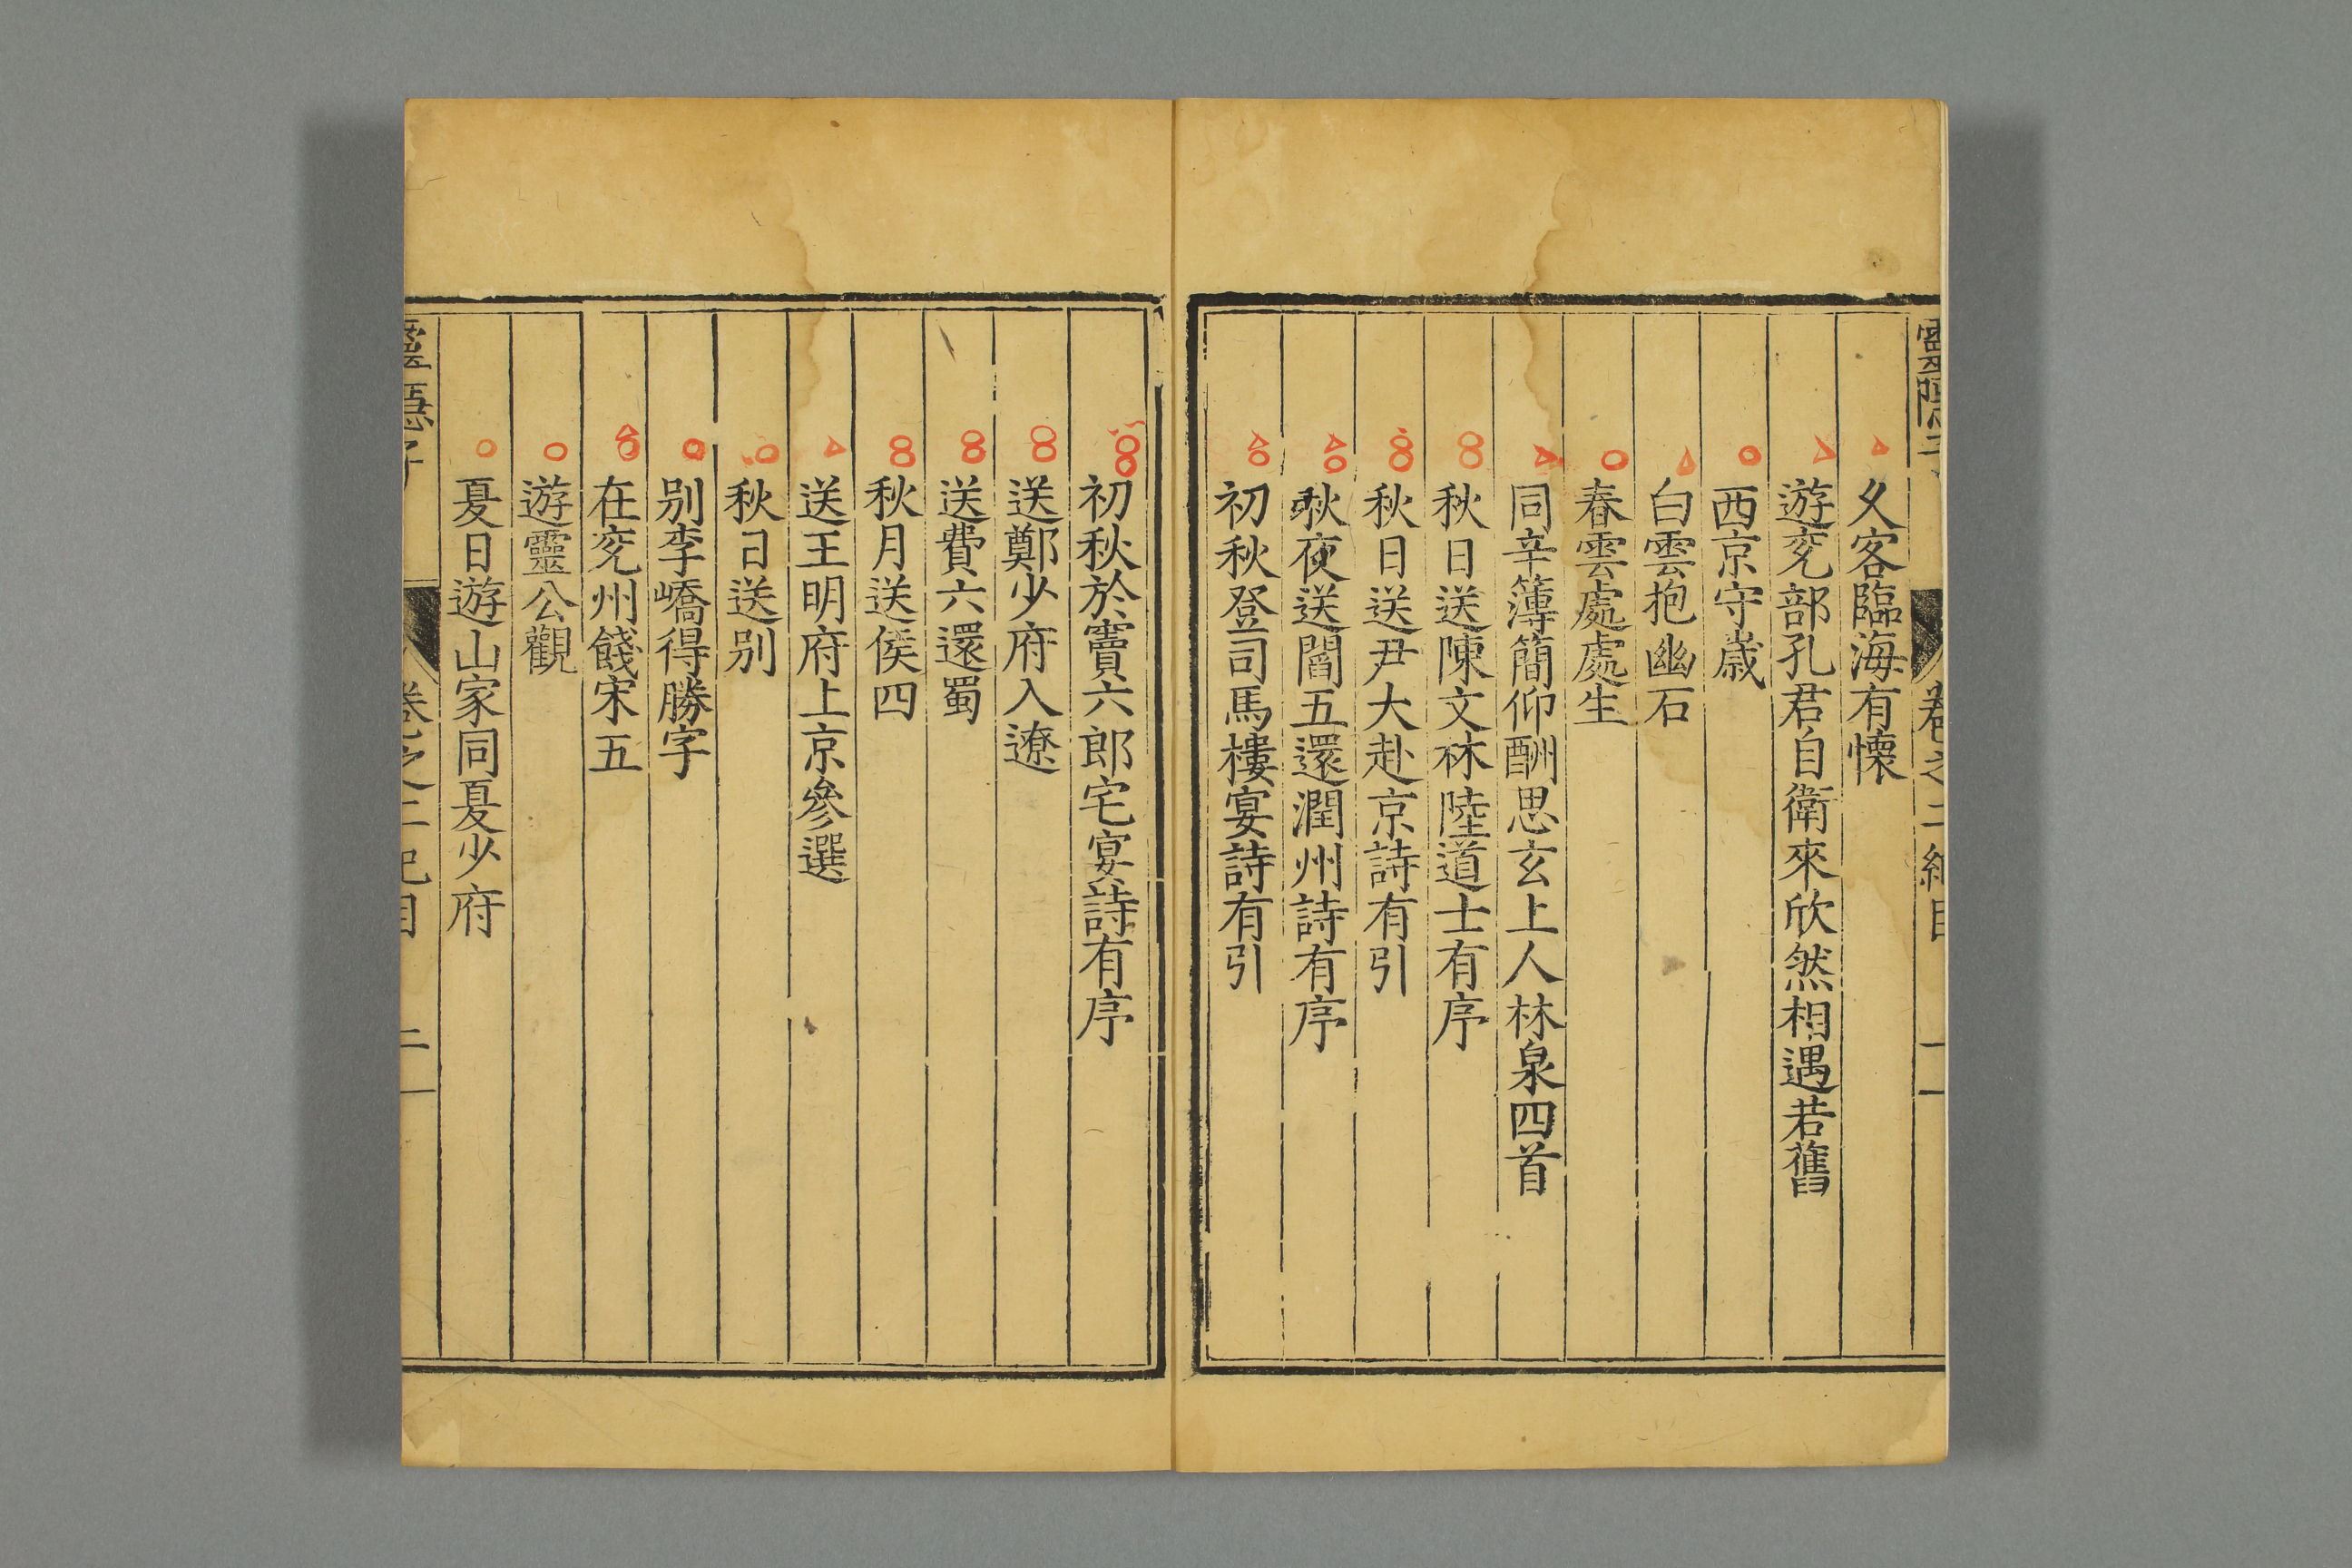 靈隱子 卷之二 總目 一
久客臨海有懷
遊兖部孔君自衛來欣然相遇若舊
西京守歲
白雲抱幽石
春雲處處生
同辛簿簡仰酬思玄上人林泉四首
秋日送陳文林陸道士有序
秋日送尹大赴京詩有引
秋夜送閻五還潤州詩有序
初秋登司馬樓宴詩有引
初秋於竇六郎宅宴詩有序
送鄭少府入遼
送費六還蜀
秋月送侯四
送王明府上京參選
秋日送别
别李嶠得勝字
在兖州餞宋五
遊靈公觀
夏日遊山家同夏少府
靈隱子 卷之二 總目 二